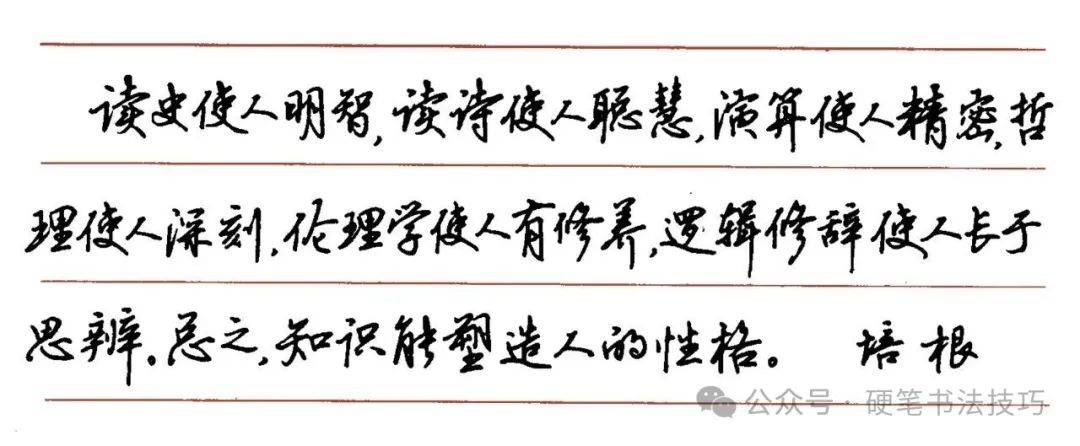 读史使人明智,读诗使人聪慧,演算使人精密,哲
理使人深刻,伦理学使人有修养,逻辑修辞使人长于
思辨。总之,知识能塑造人的性格。 培根
公众号·硬笔书法技巧